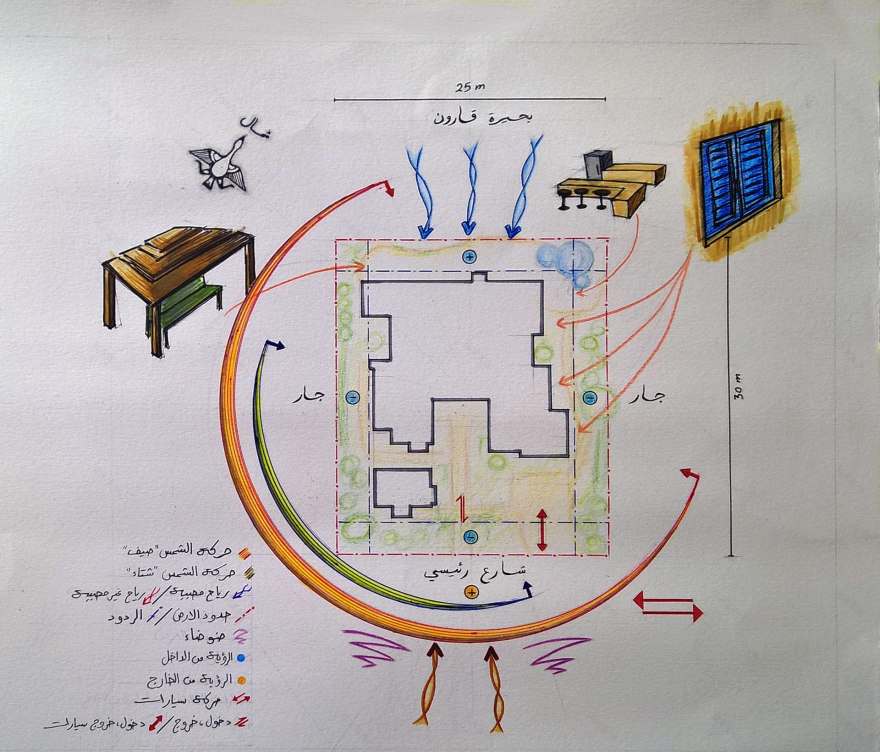 25 m
بحيرة قارون
شمال
30 m
جار
جار
شارع رئيسي
حركة الشمس "صيف"
حركة الشمس "شتاء"
رياح محببة / رياح غير محببة
حدود الأرض / الردود
ضوضاء
الرؤية من الداخل
الرؤية من الخارج
حركة سيارات
دخول، خروج / دخول، خروج سيارات